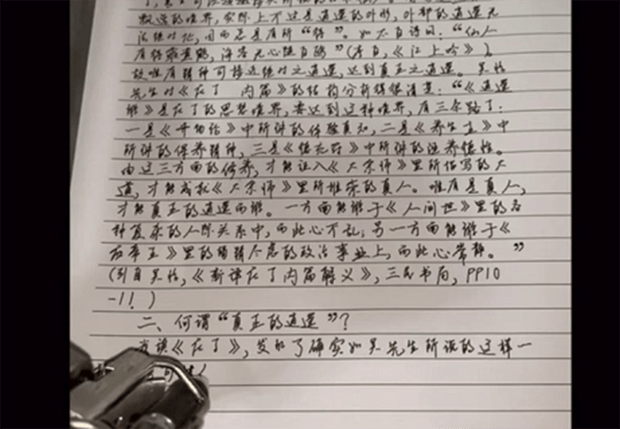 飘逸的境界，实际上不过是逍遥的外形，外部的逍遥无
法绝对化，因而总是有所“待”。如太白诗曰：“仙人
有待乘黄鹤，海客无心随白鸥”（李白，《江上吟》）。
故唯有精神可接近绝对之逍遥，达到真正之逍遥。吴怡
先生对《庄子 内篇》的结构分析得很清楚：“《逍遥
游》是庄子的思想境界，要达到这种境界，有三条路子：
一是《齐物论》中所讲的体验真知，二是《养生主》中
所讲的保养精神，三是《德充符》中所讲的涵养德性。
由这三方面的修养，才能证入《大宗师》里所描写的大
道，才能成就《大宗师》里所推崇的真人。唯有是真人，
才能真正的逍遥而游。一方面能游于《人间世》里的各
种复杂的人际关系中，而此心不乱；另一方面能游于《
应帝王》里的的政治事业上，而此心常静。”
（引自吴怡，《新译庄子内篇解义》，三民书局，PP10
-11）
二、何谓“真正的逍遥”？
我读《庄子》，发和了确实如吴先生所说的这样一